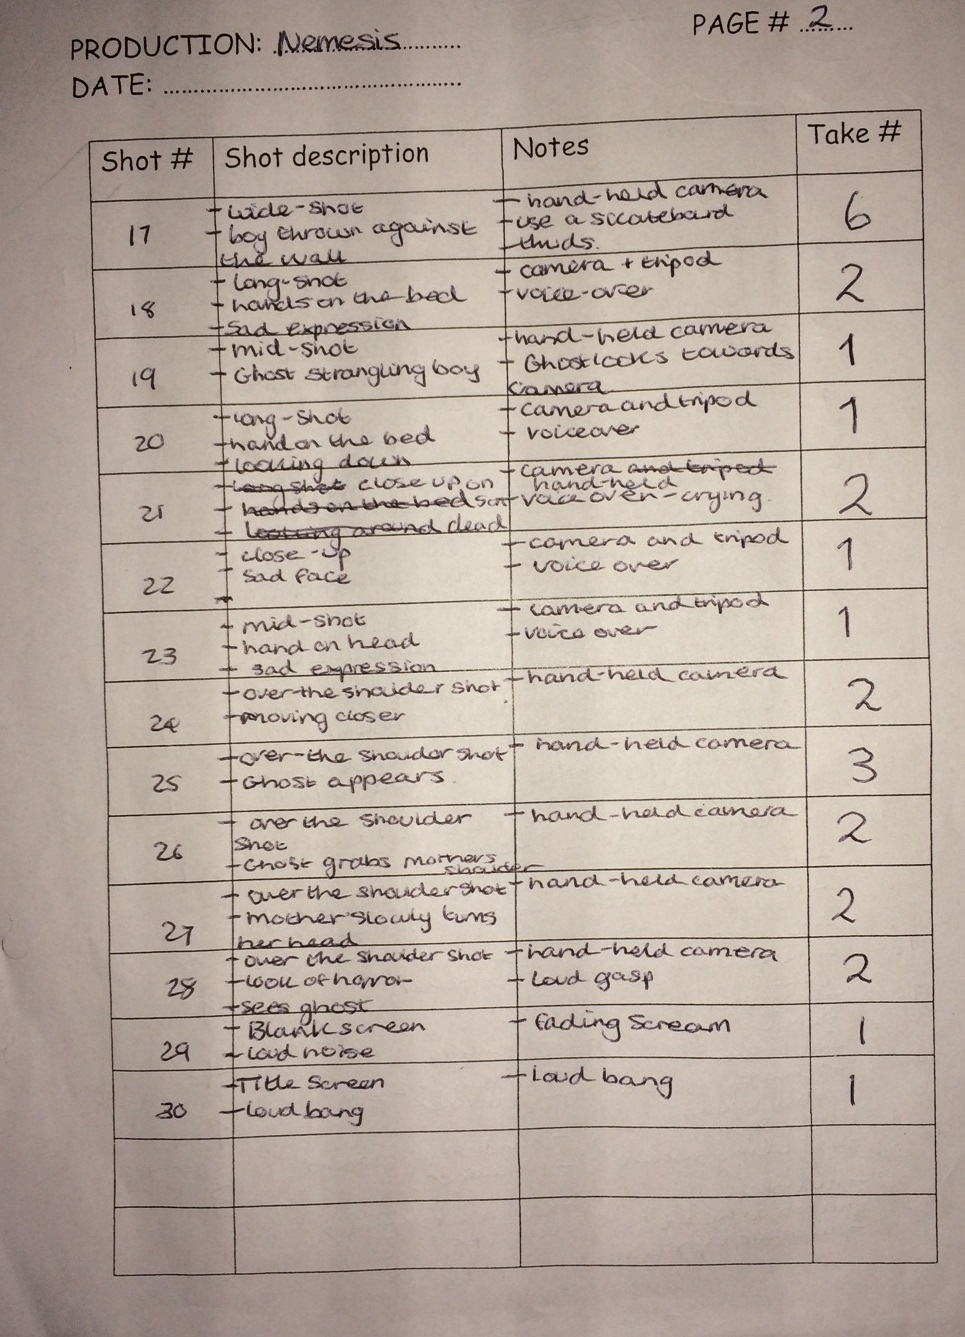 PAGE # 2
PRODUCTION: Nemesis
DATE:
Shot # Shot description Notes Take #
17
- wide-shot
- boy thrown against
the wall
- hand-held camera
- use a sccateboard
- thuds.
6
18
- long-shot
- hands on the bed
- Sad expression
- camera + tripod
- voice-over
2
19
- mid-shot
- Ghost strangling boy
- hand-held camera
- Ghost looks towards
camera
1
20
- long-shot
- hand on the bed
- looking down
- camera and tripod
- voiceover
1
21
- long shot close up on
- hands on the bed son
- looking around dead
- camera and tripod
hand-held
- voice over-crying.
2
22
- close-up
- sad face
- camera and tripod
- voice over
1
23
- mid-shot
- hand on head
- sad expression
- camera and tripod
- voice over
1
24
- over-the shoulder shot
- moving closer
- hand-held camera
2
25
- over-the shoulder shot
- Ghost appears.
- hand-held camera
3
26
- over the shoulder
shot
- Ghost grabs mothers
shoulder
- hand-held camera
2
27
- over the shoulder shot
- mother slowly turns
her head
- hand-held camera
2
28
- over the shoulder shot
- look of horror
- sees ghost
- hand-held camera
- Loud gasp
2
29
- Blank screen
- loud noise
- fading scream
1
30
- Title screen
- loud bang
- loud bang
1